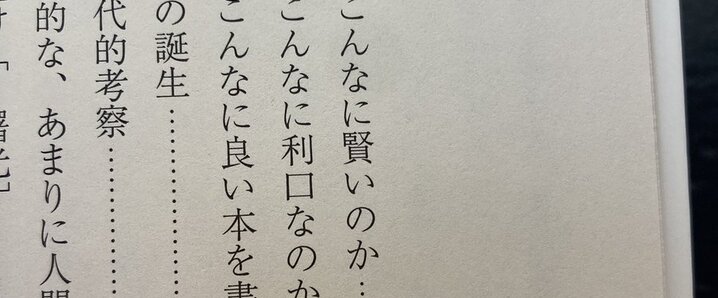 こんなに賢いのか…
こんなに利口なのか
こんなに良い本を書
の誕生……………
代的考察…………
的な、あまりに人間
「曙光」